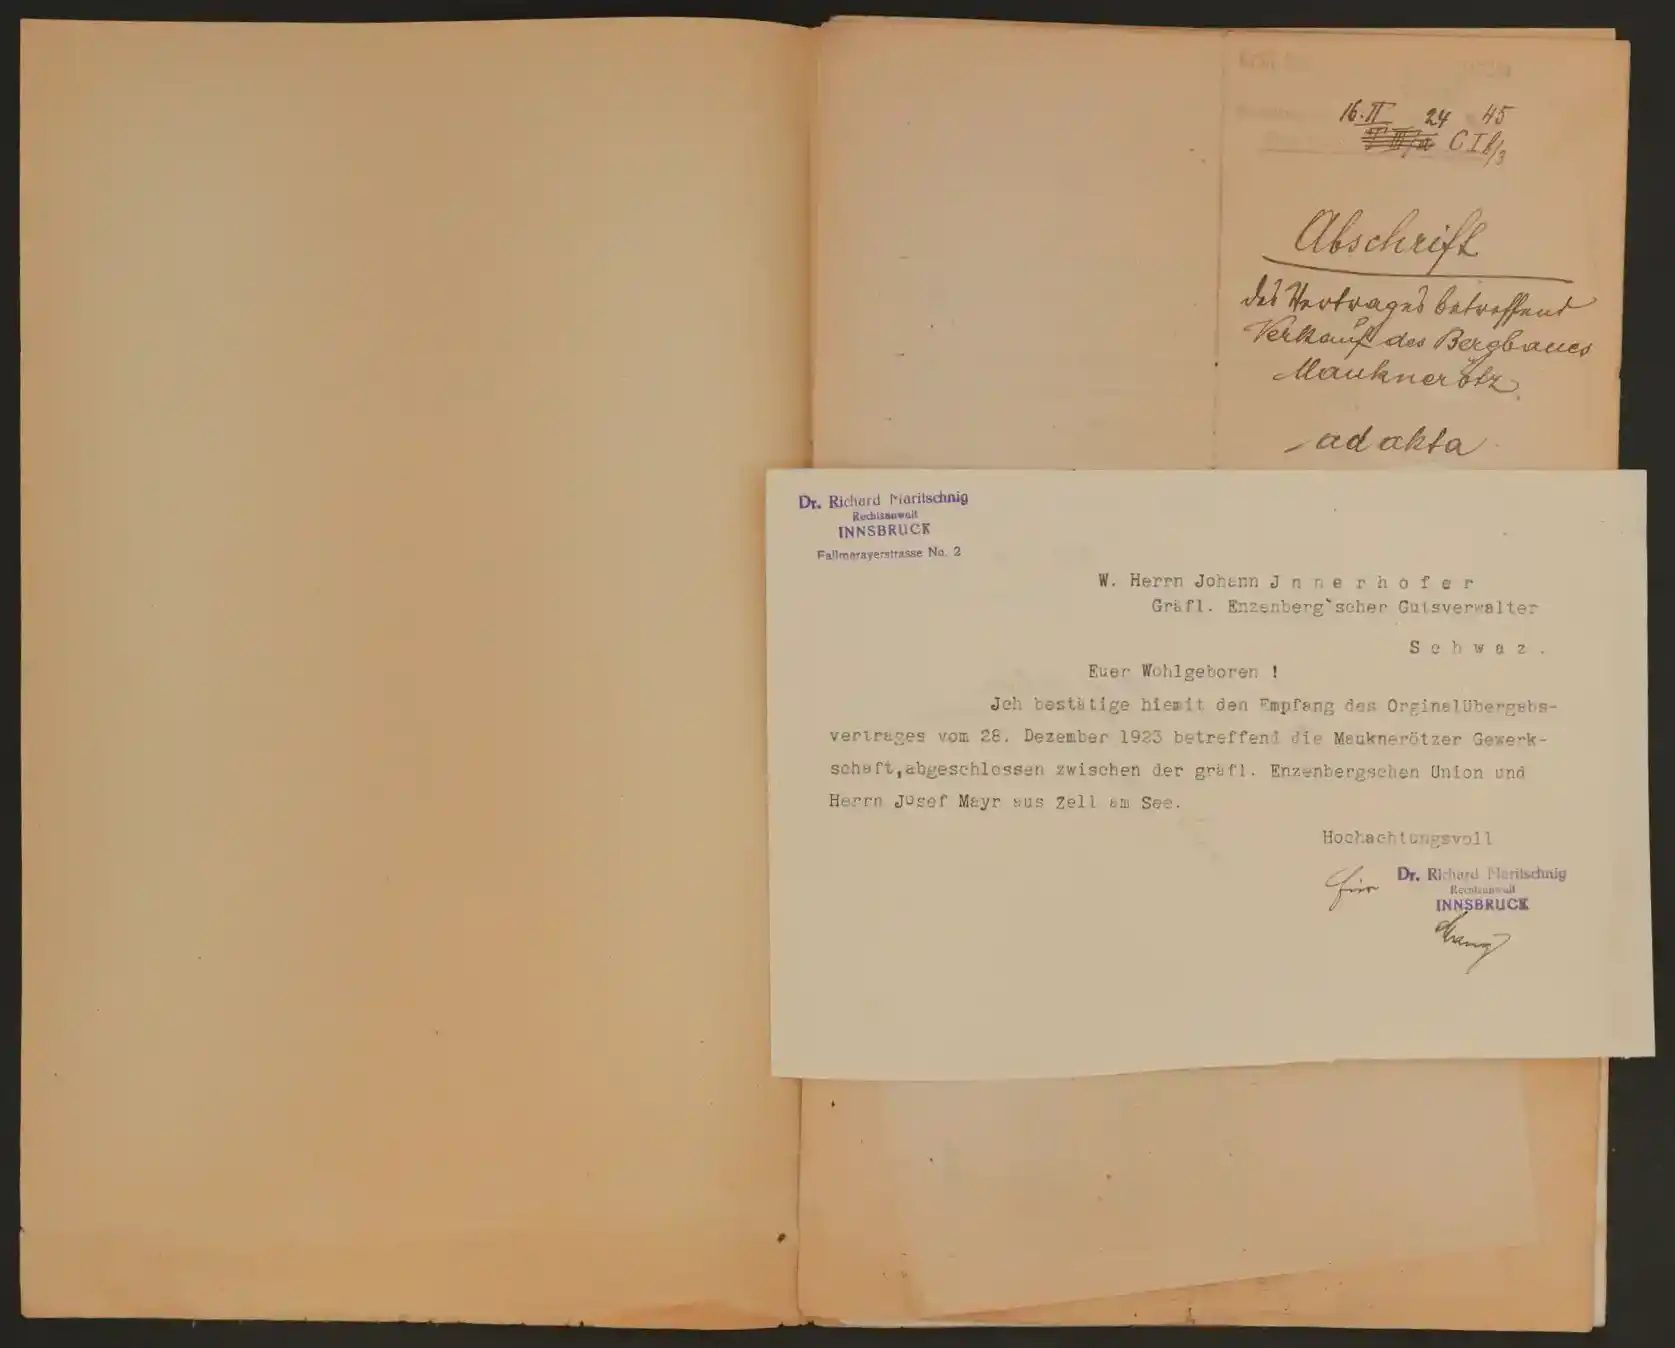 16.II 24 45
C I b/3
Abschrift
des Vertrages betreffend
Verkauf des Bergbaues
Mauknerötz.
ad akta
Dr. Richard Maritschnig
Rechtsanwalt
INNSBRUCK
Fallmerayerstrasse No. 2
W. Herrn Johann J n n e r h o f e r
Gräfl. Enzenberg`scher Gutsverwalter
S c h w a z .
Euer Wohlgeboren !
Jch bestätige hiemit den Empfang des Orginalübergabs-
vertrages vom 28. Dezember 1923 betreffend die Mauknerötzer Gewerk-
schaft,abgeschlossen zwischen der gräfl. Enzenbergschen Union und
Herrn Josef Mayr aus Zell am See.
Hochachtungsvoll
für Dr. Richard Maritschnig
Rechtsanwalt
INNSBRUCK